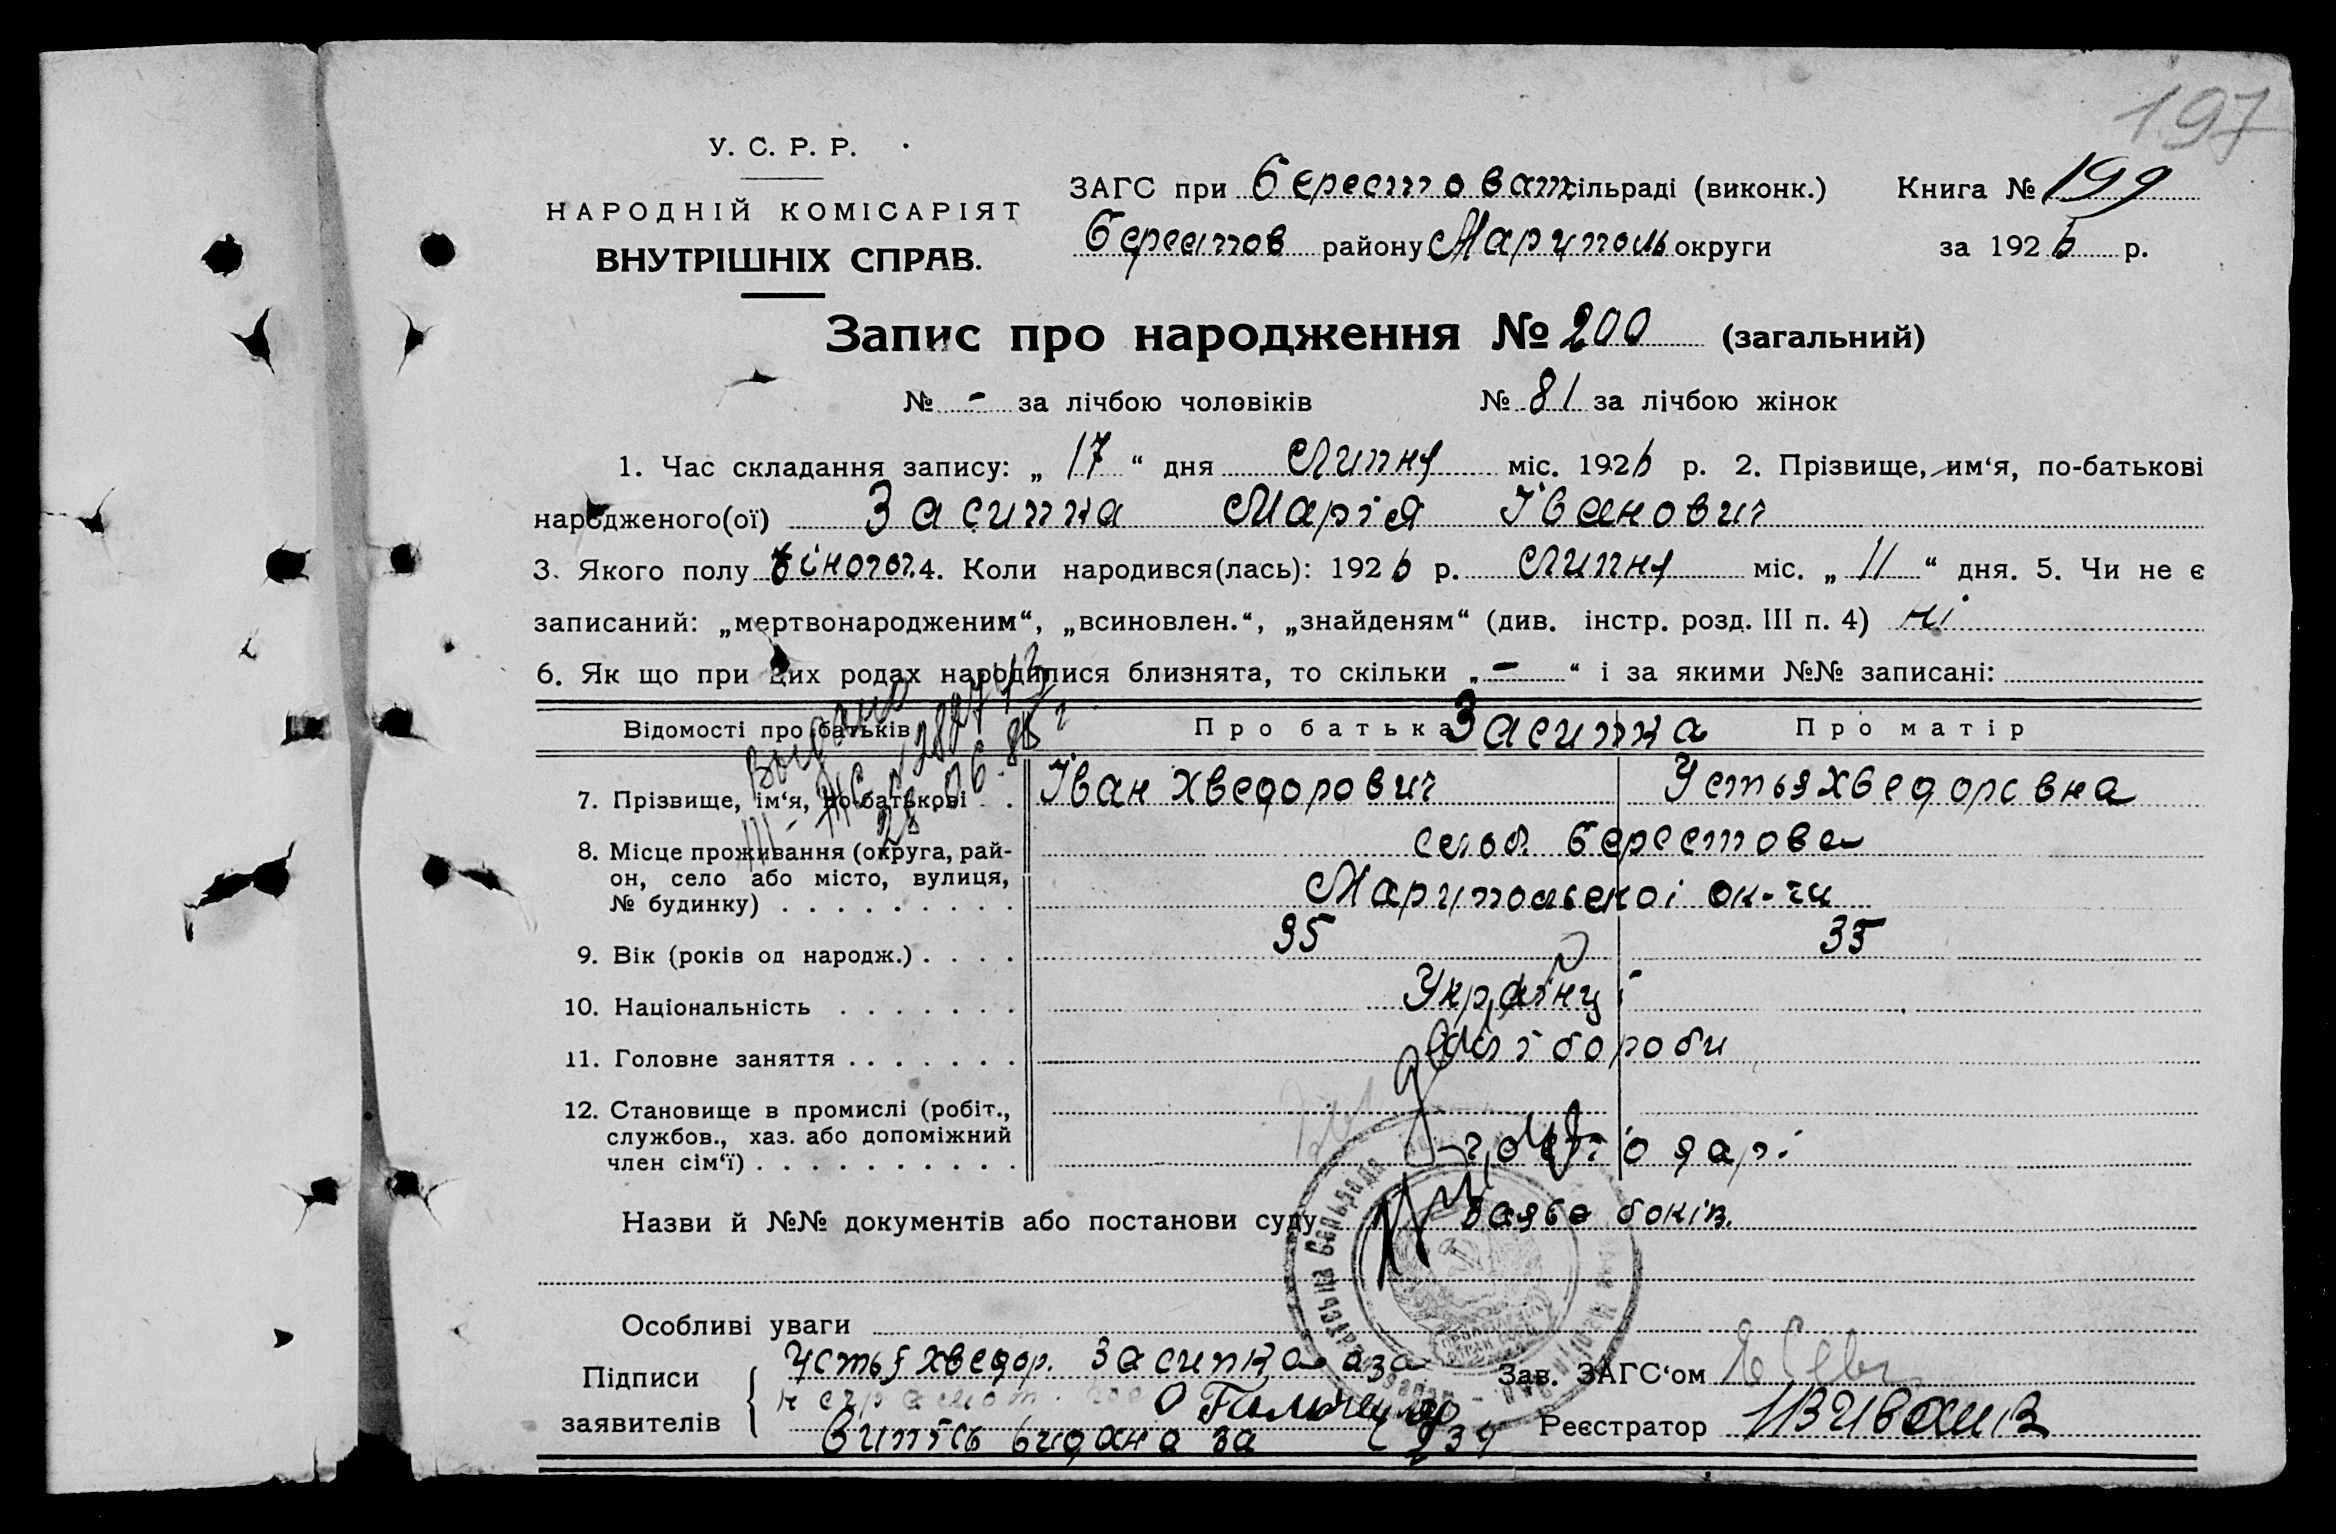 197
У. С. Р. Р.
НАРОДНІЙ КОМІСАРІЯТ
ВНУТРІШНІХ СПРАВ.
ЗАГС при Берестоват сільраді (виконк.) Книга № 199
Берестов району Маріуполь округи за 1926 р.
Запис про народження № 200 (загальний)
№ - за лічбою чоловіків № 81 за лічбою жінок
1. Час складання запису: „ 17 “ дня Липня міс. 1926 р. 2. Прізвище, им‘я, по-батькові
народженого(ої) Засипка Марія Іванович
3. Якого полу жіночог. 4. Коли народився(лась): 1926 р. Липня міс. „ 11 “ дня. 5. Чи не є
записаний: „мертвонародженим“, „всиновлен.“, „знайденям“ (див. інстр. розд. III п. 4) ні
6. Як що при цих родах народилися близнята, то скільки „ - “ і за якими №№ записані:
Відомості про батьків Про батька Засипка Про матір
7. Прізвище, ім‘я, по-батькові . . Іван Хведорович Устья Хведоровна
8. Місце проживання (округа, рай- село Берестова
он, село або місто, вулиця,
№ будинку) . . . . . . . . . Маріупольської ок-ги
9. Вік (років од народж.) . . . . 35 35
10. Національність . . . . . . . Українці
11. Головне заняття . . . . . . . хлібороби
12. Становище в промислі (робіт.,
службов., хаз. або допоміжний
член сім‘ї) . . . . . . . . . . господарі
Назви й №№ документів або постанови суду заява
Особливі уваги
Підписи
заявителів
Устья Хведор. Засипка аза
неграмот.
Витяг видана за
Зав. ЗАГС‘ом
Реєстратор
Выдано